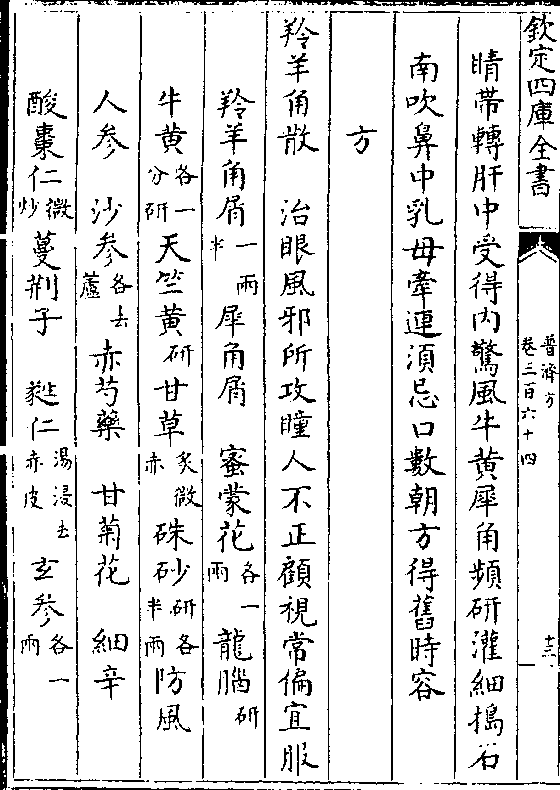 欽定四庫全書
普濟方
卷三百六十四
十三
睛帶轉肝中受得内驚風牛黄犀角頻研灌細搗石
南吹鼻中乳母牽連湏忌口數朝方得舊時容
方
羚羊角散 治眼風邪所攻瞳人不正顧視常偏宜服
羚羊角屑一兩半 犀角屑 蜜蒙花各一兩 龍腦研
牛黄各一分研 天竺黄研 甘草炙微赤 硃砂研各半兩 防風
人參 沙參各去蘆 赤芍藥 甘菊花 細辛
酸棗仁微炒 蔓荆子 蕤仁湯浸去赤皮 玄參各一兩